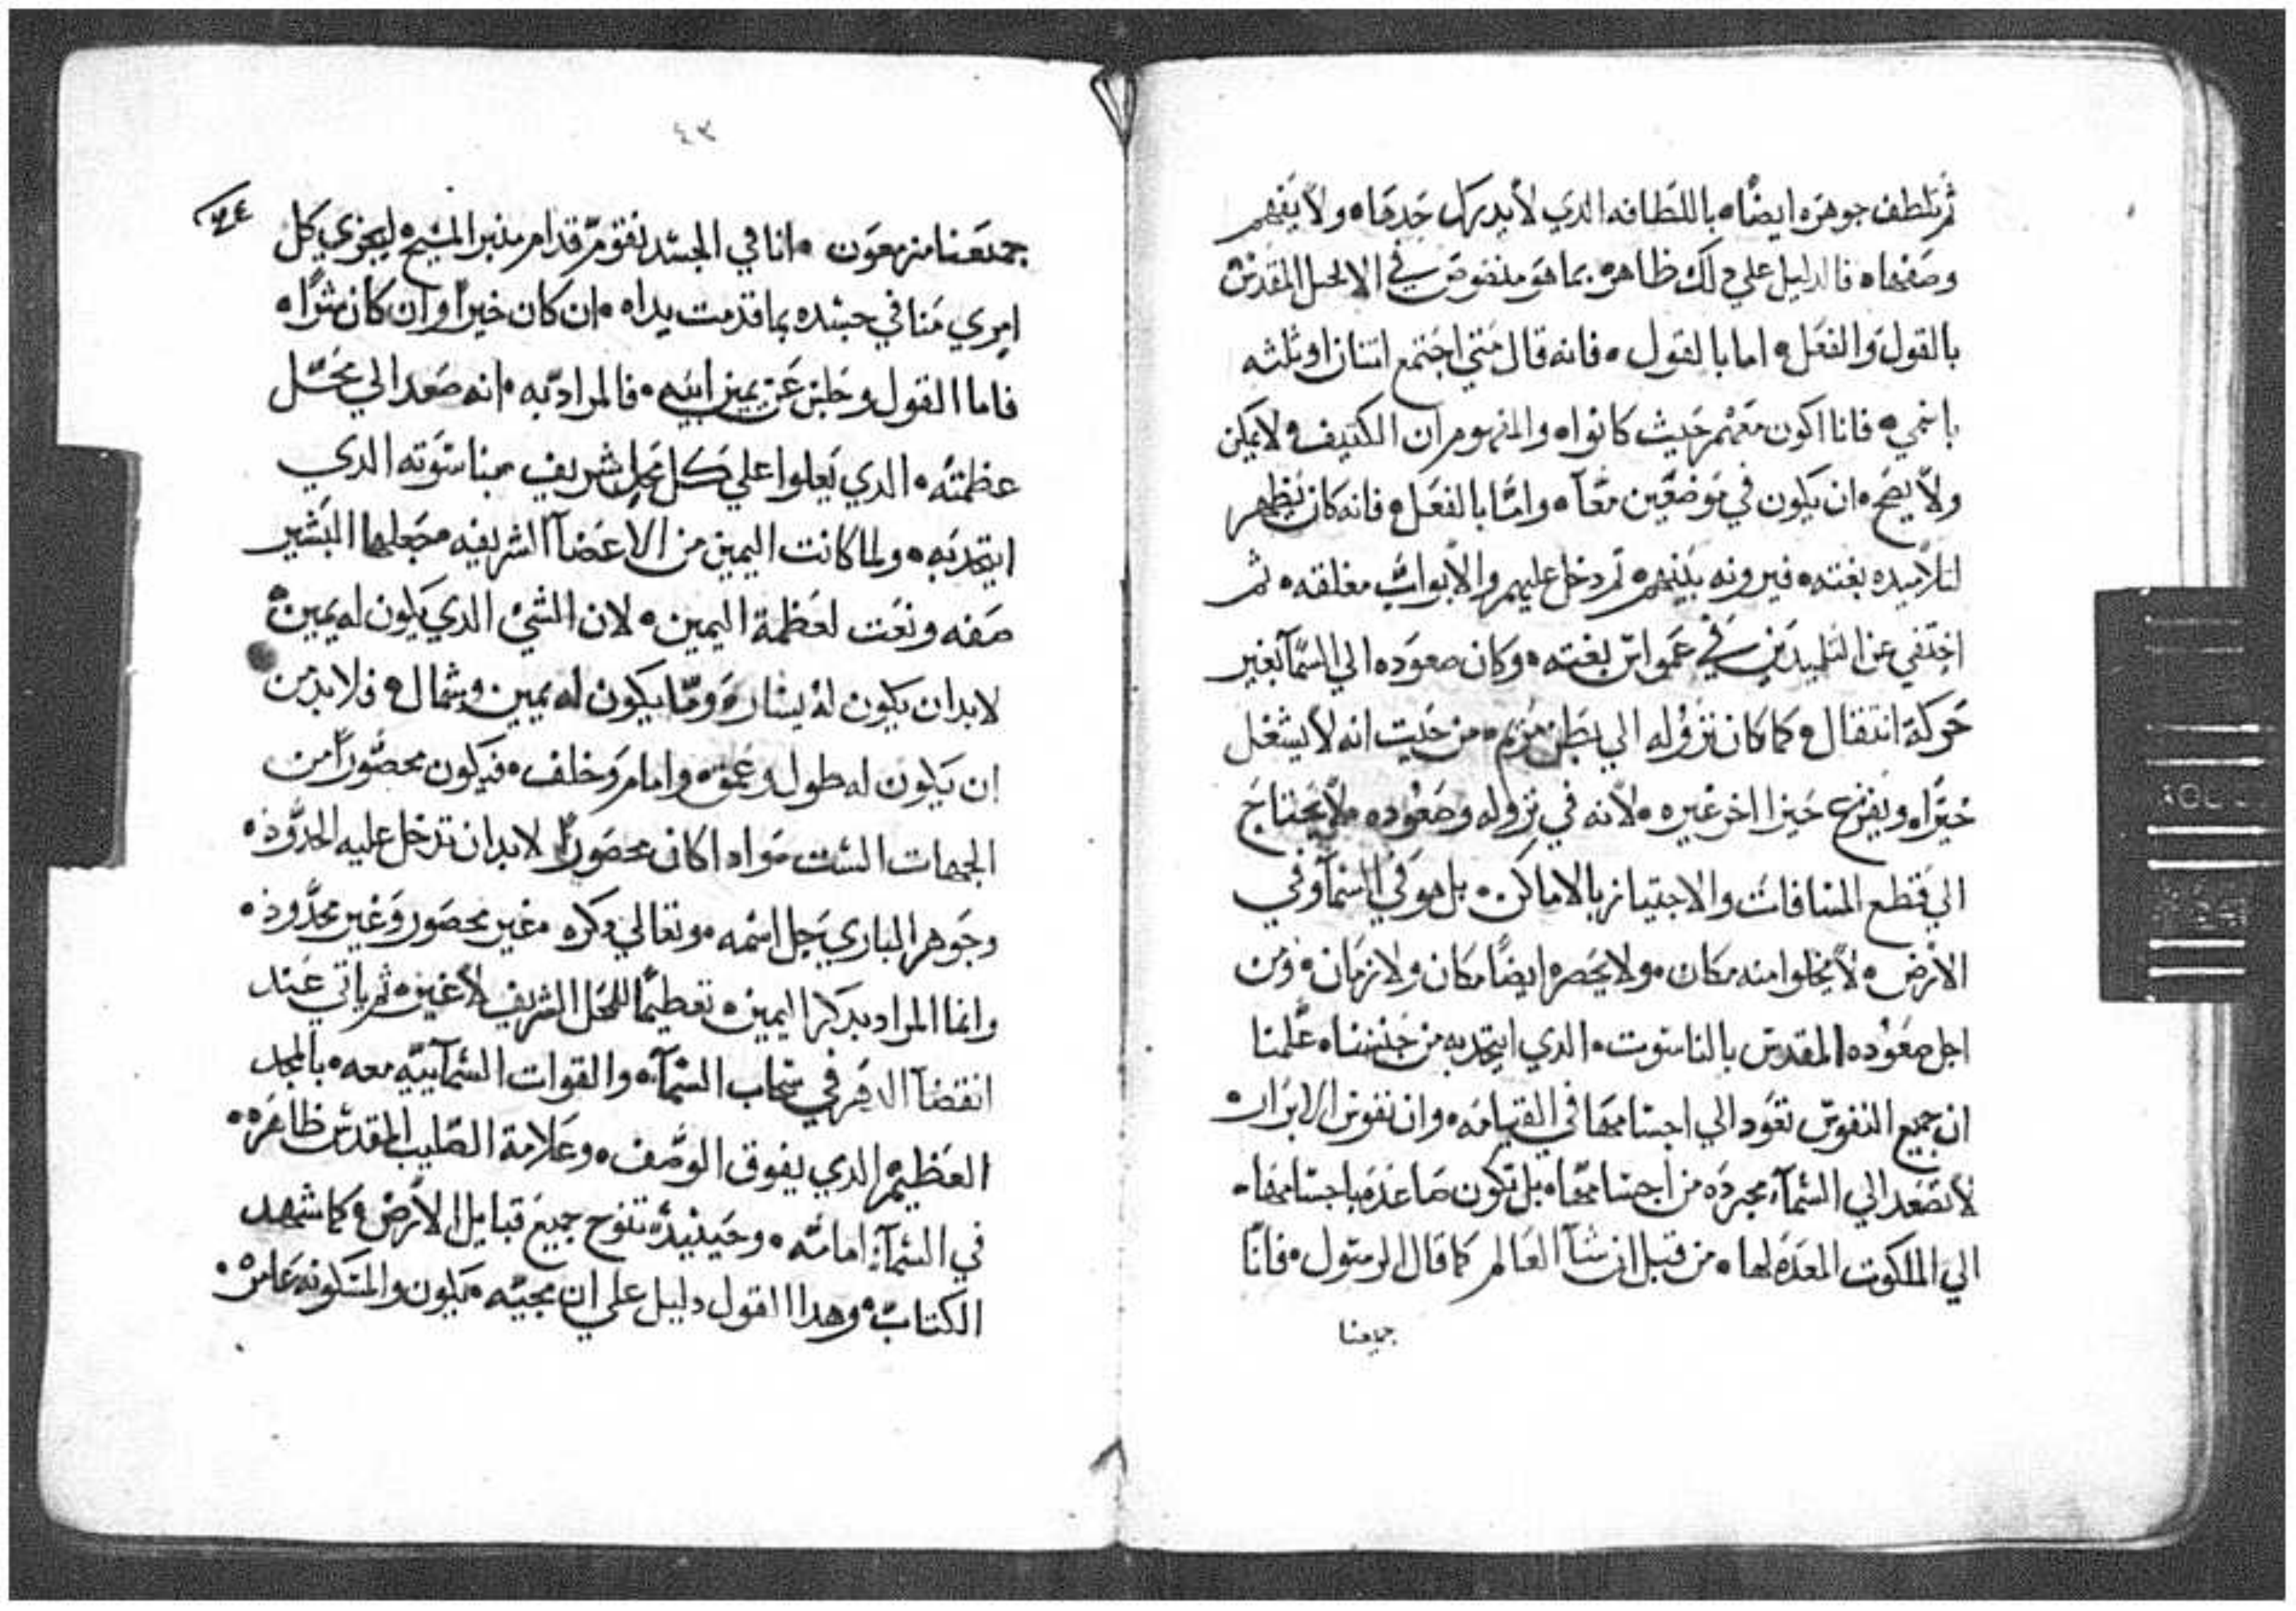 ثم تلطف جوهره ايضًا ه باللطافه الدي لا يدرك حدها ه ولا يفهم
وصفها ه فالدليل علي دلك ظاهر ه بما هو منصوص في الانجيل المقدس
بالقول والفعل ه اما بالقول ه فانه قال متي اجتمع اتنان او ثلثه
باسمي ه فانا اكون معهم حيث كانوا ه والمفهوم ان الكتيف ه لا يمكن
ولا يصح ه ان يكون في موضعين معًا ه وامّا بالفعل ه فانه كان يظهر
لتلاميده بغته ه فيرونه بينهم ه ثم دخل عليهم والابواب مغلقه ه ثم
اختفي عن التلميدين في عمواس بغته ه وكان صعوده الي السمآ بغير
حركة انتقال ه كما كان نزوله الي بطن مريم ه من حيث انه لا يشغل
حيزًا ه ويفرغ حيزا اخر غيره ه لانه في نزوله وصعوده ه لا يحتاج
الي قطع المسافات والاجتياز بالاماكن ه بل هو في السمآ وفي
الارض ه لا يخلوا منه مكان ه ولا يحصره ايضًا مكان ولا زمان ه ومن
اجل صعوده المقدس بالناسوت ه الدي ايتحد به من جنسنا ه علمنا
ان جميع النفوس تعود الي اجسامها في القيامه ه وان نفوس الابرار ه
لا تصعد الي السمآ مجرده من اجسامها ه بل تكون صاعده باجسامها ه
الي الملكوت المعده لها ه من قبل انشآ العالم كما قال الرسول ه فانّا
جميعنا
٤٣
جميعنا مزمعون ه اننا في الجسد نقوم قدام منبر المسيح ه ليجزي كل
امري منا في جسده بما قدمت يداه ه ان كان خيرًا وان كان شرًا ه
فاما القول وجلس عن يمين ابيه ه فالمراد به ه انه صعد الي محل
عظمته ه الدي يعلوا علي كل محل شريف بناسوته الدي
ايتحد به ه ولما كانت اليمين من الاعضآ الشريفه ه جعلها البشير
صفه ونعت لعظمة اليمين ه لان الشي الدي يكون له يمين ه
لابد ان يكون له يسار ه وما يكون له يمين وشمال ه فلا بد من
ان يكون له طول وعمق ه وامام وخلف ه فيكون محصورًا من
الجهات الست ه واداكان محصورًا لابد ان تدخل عليه الحدود ه
وجوهر الباري جل اسمه ه وتعالي دكره ه غير محصور وغير محدود ه
وانما المراد بدكر اليمين ه تعظيمًا للمحل الشريف لا غير ه ثم ياتي عند
انقضآ الدهر في سحاب السمآ ه والقوات السمآييه معه ه بالمجد
العظيم الدي يفوق الوصف ه وعلامة الصليب المقدس ظاهره ه
في السمآ امامه ه وحينيد ه تنوح جميع قبايل الارض ه كما شهد
الكتاب ه وهدا القول دليل علي ان مجيه ه يكون والمسكونه عامره ه